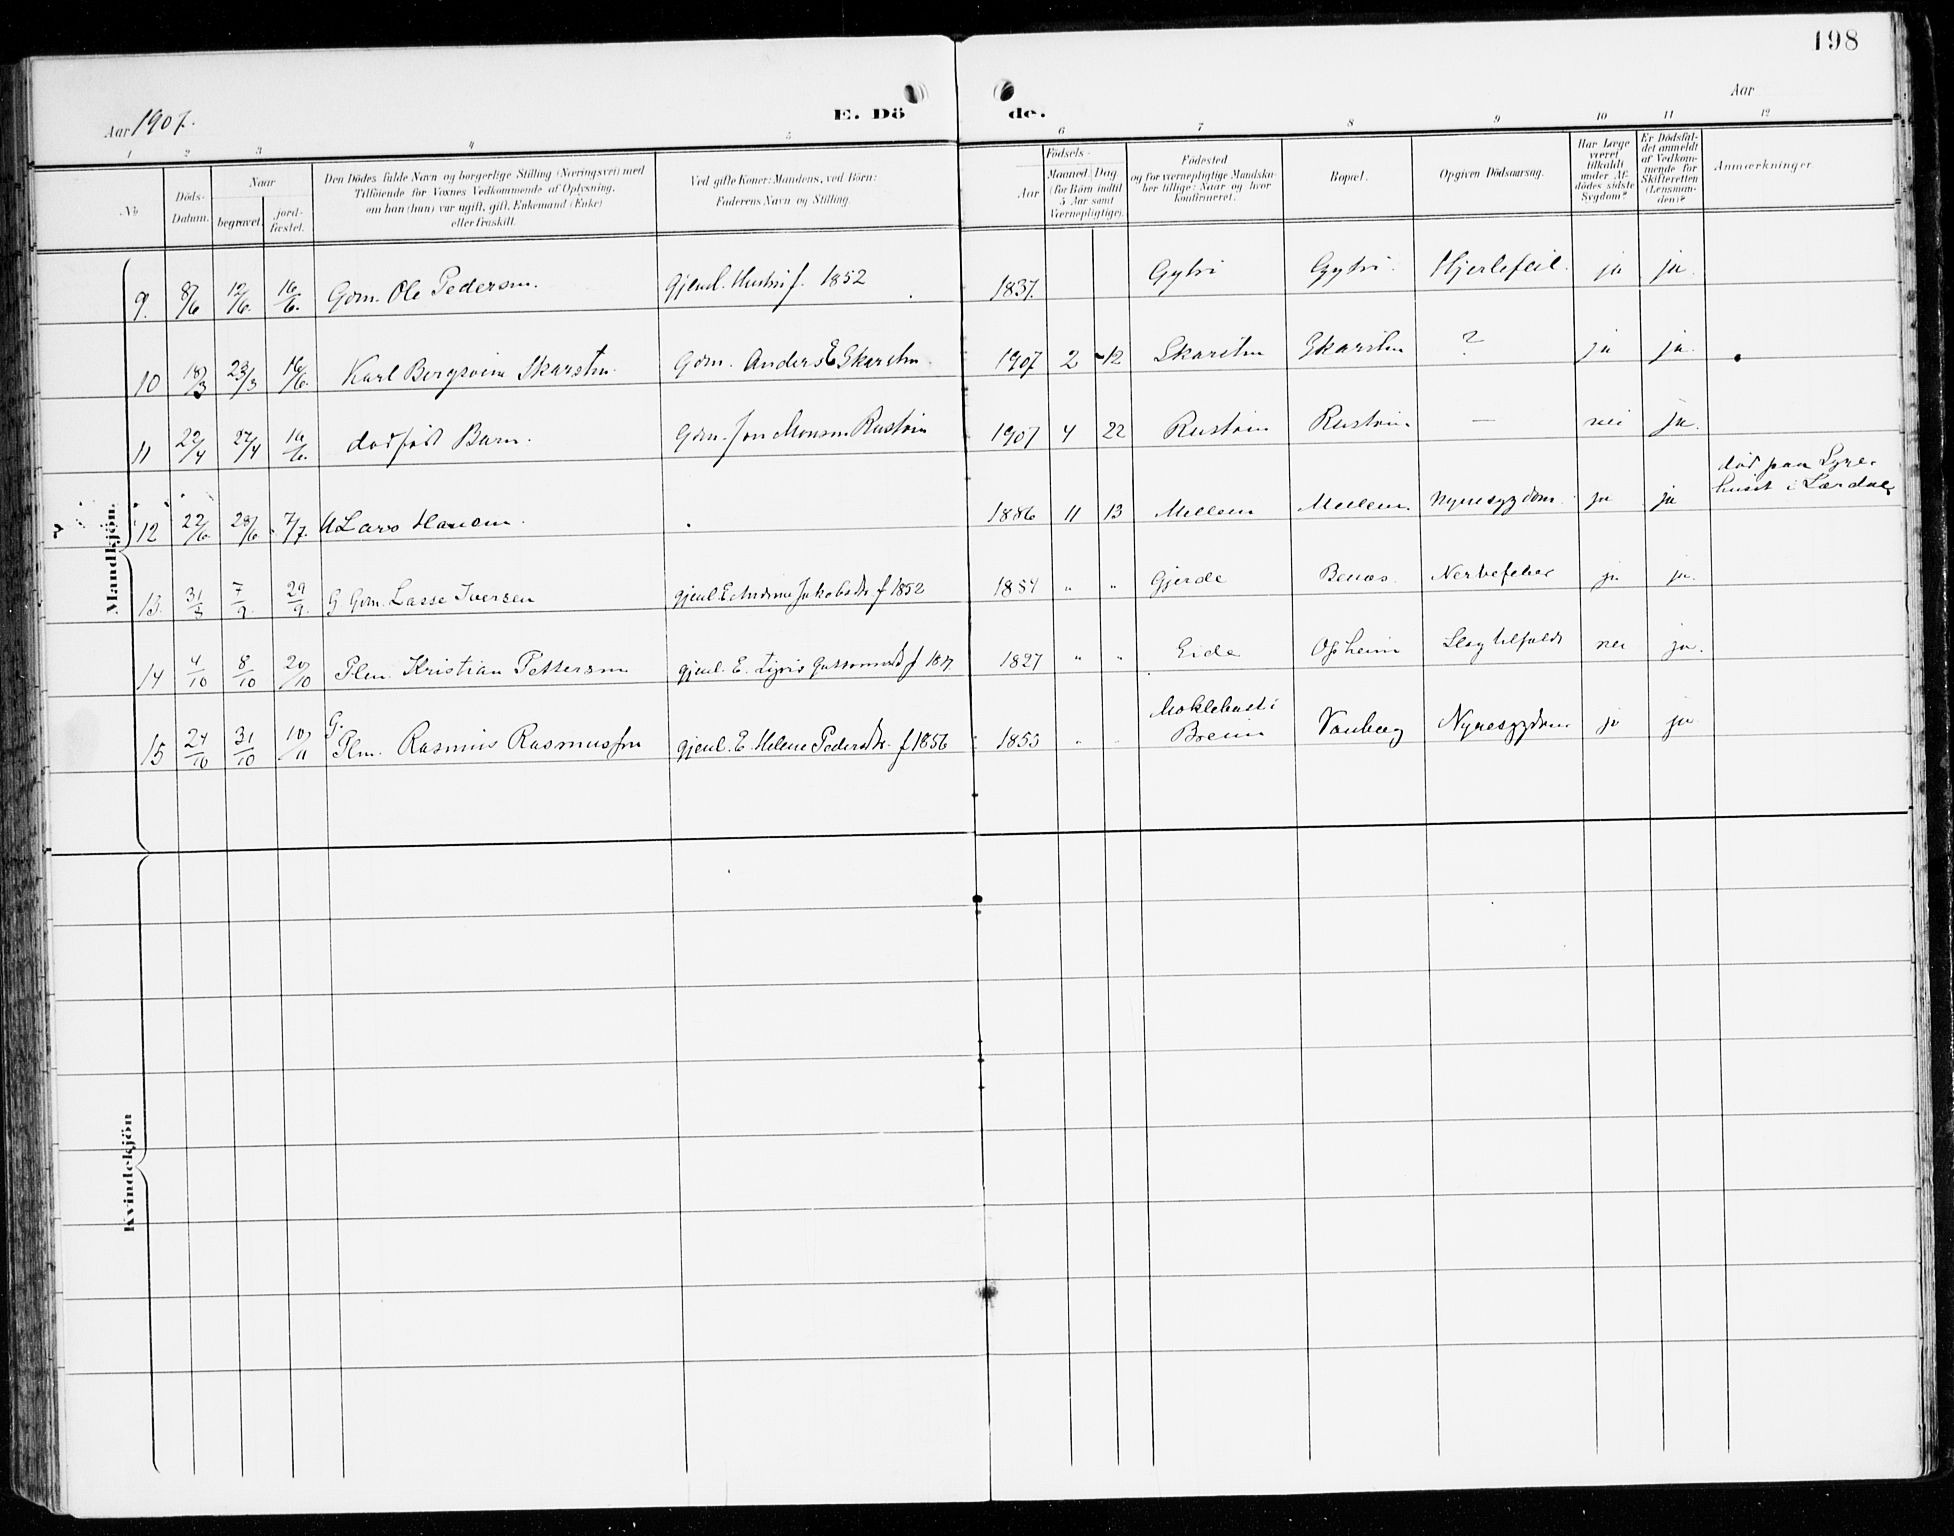 198
Aar 1907.
E. Dö de.
Aar
1 2 3 4 5 6 7 8 9 10 11 12
No
Döds-
Datum.
Naar
begravet.
jord-
fæstet.
Den Dödes fulde Navn og borgerlige Stilling (Næringsvei) med
Tilföiende for Voxnes Vedkommende af Oplysning,
om han (hun) var ugift, gift, Enkemand (Enke)
eller fraskilt.
Ved gifte Koner: Mandens, ved Börn:
Faderens Navn og Stilling.
Födsels-
Aar
Maaned. Dag.
(for Börn indtil
5 Aar samt
Værnepligtige).
Födested
og for værnepligtige Mandska-
ber tillige: Naar og hvor
konfirmeret.
Bopæl.
Opgiven Dödsaarsag.
Har Læge
været
tilkaldt
under Af-
dödes sidste
Sygdom?
Er Dödsfal-
det anmeldt
af Vedkom-
mende for
Skifteretten
(Lensman-
den)?
Anmærkninger
Mandkjön.
9. 8/6 12/6. 16/6. Gdm. Ole Pedersen. gjenl. Hustru f. 1852 1837. Gytri Gytri. Hjertefeil. ja ja.
10 18/3 23/3 16/6. Karl Bergsvein Skarsten. Gdm. Anders E Skarsten 1907 2 12 Skarsten Skarsten ? ja ja.
11 22/4 27/4 16/6. dødfødt Barn. Gdm. Jon Monsen Rustøin 1907 4 22 Rustøin Rustøin — nei ja.
død paa Syge-
huset i Lærdal
12 22/6 28/6 7/7. U Lars Hansen. 1886 11 13 Mellem Mellem. Nyresygdom. ja ja
13. 31/8 7/9. 29/9. G Gdm. Lasse Iversen gjenl. E Andrine Jakobsdtr. f 1852 1854 " " Gjerde Benæs. Nervefeber ja ja.
14 4/10 8/10 20/10 Plm. Kristian Pettersen gjenl. E. f 1827 " " Eide Opheim Slagtilfælde nei ja.
15 24/10 31/10 10/11 G. Plm. Rasmus Rasmussen gjenl. E. Helene Pedersdtr. f 1856 1855 " " Moklebust i
Breim Vanberg Nyresygdom ja ja
Kvindekjön